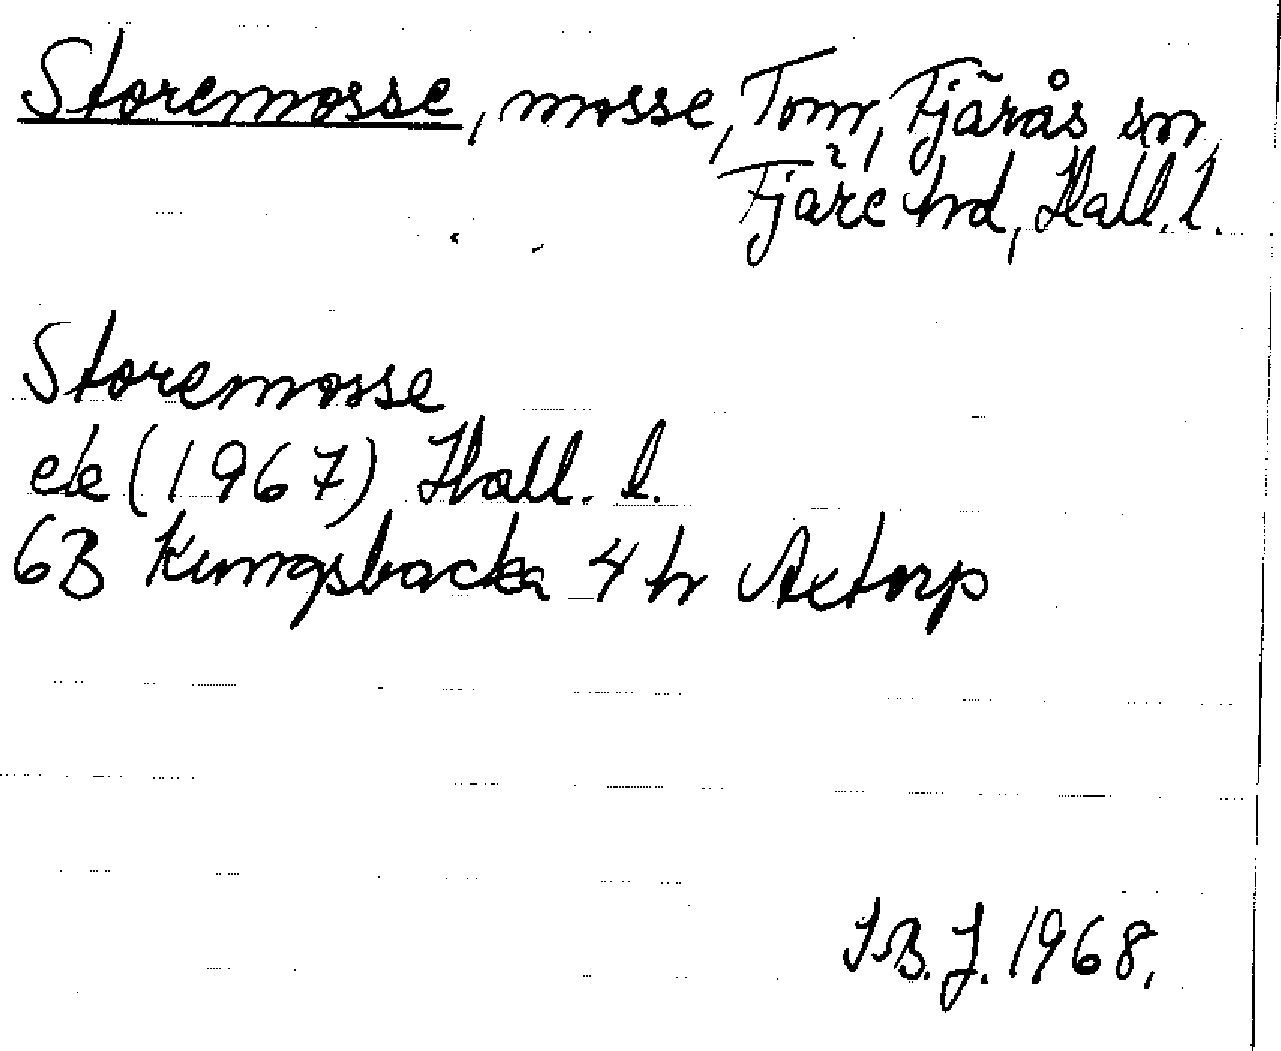 Storemosse, mosse, Tom, Fjärås sn,
Fjäre hd, Hall. l.
Storemosse
ek (1967) Hall. l.
6B Kungsbacka 4h Axtorp
I.B.J. 1968.